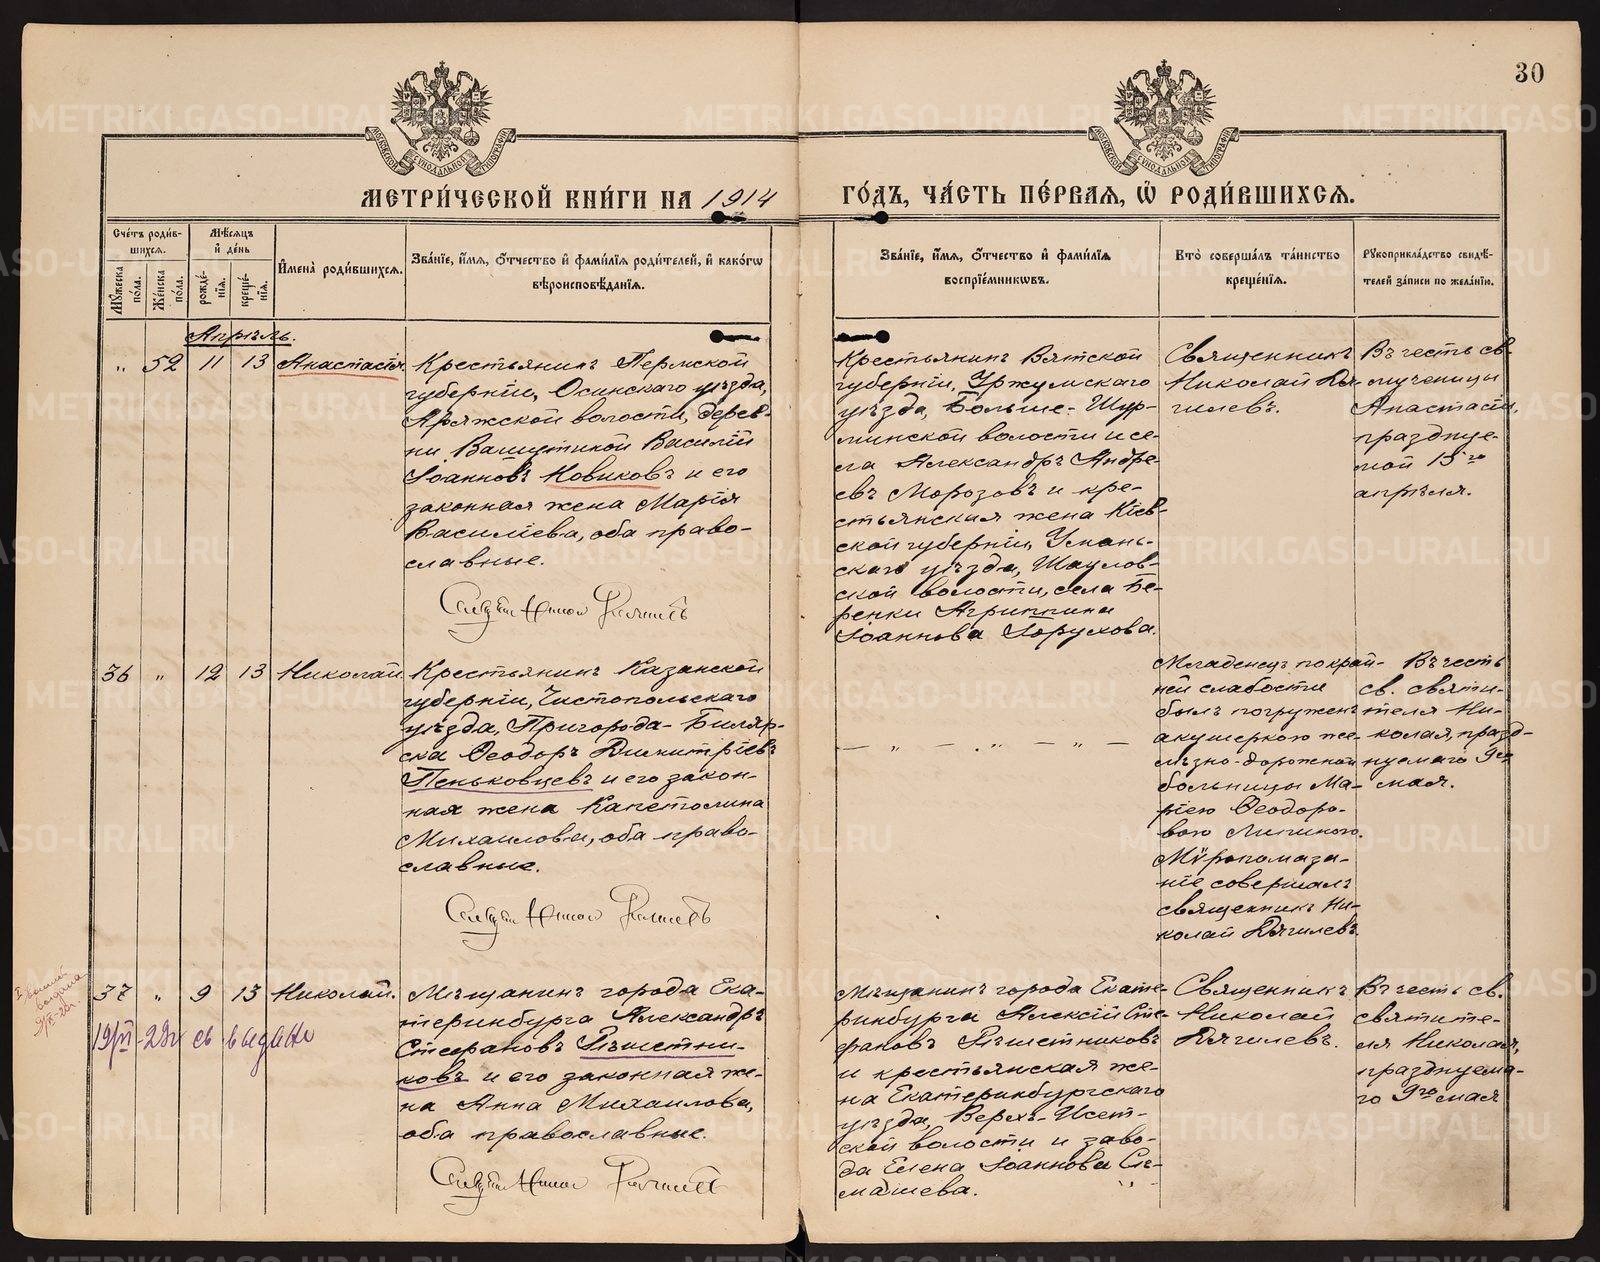 30
МЕТРИ́ЧЕСКОЙ КНИ́ГИ НА 1914
ГО́ДЪ, ЧА́СТЬ ПЕ́РВАЯ, Ѡ РОДИ́ВШИХСЯ.
Сче́тъ роди́в-
шихся.
Му́жеска по́ла.
Же́нска по́ла.
Мѣ́сяцъ
и҆ де́нь
рожде́-
нїѧ.
креще́-
нїѧ.
И҆мена̀ роди́вшихся.
Зва́нїе, и҆́мя, ѻ҆́тчество и҆ фами́лїя роди́телей, и҆ како́гѡ
вѣроисповѣ́данїя.
Зва́нїе, и҆́мя, ѻ҆́тчество и҆ фами́лїя
воспрїе́мникѡвъ.
Кто̀ соверша́лъ та́инство
креще́нїя.
Рꙋкоприкла́дство свидѣ́-
телей за́писи по жела́нїю.
Апрѣль.
„ 52 11 13 Анастасія
Крестьянинъ Пермской
губерніи, Осинскаго уѣзда,
Аряжской волости, дерев-
ни Василій
Іоанновъ Новиковъ и его
законная жена Марія
Василіева, оба право-
славные.
Крестьянинъ Вятской
губерніи, Уржумскаго
уѣзда, Больше-Шур-
минской волости и се-
ла Александръ Андре-
евъ Морозовъ и кре-
стьянская жена Кіев-
ской губерніи, Умань-
скаго уѣзда,
ской волости, села Бе-
ренки Агриппина
Іоаннова
Священникъ
Николай Дя-
гилевъ.
Въ честь св.
мученицы
Анастасіи,
празднуе-
мой 15го
апрѣля.
36 „ 12 13 Николай
Крестьянинъ Казанской
губерніи, Чистопольскаго
уѣзда, Пригорода-Биляр-
ска Ѳеодоръ Димитріевъ
Пеньковцевъ и его закон-
ная жена Капетолина
Михаилова, оба право-
славные.
— „ — „ — „ —
Младенецъ по край-
ней слабости
былъ погруженъ
акушеркою же-
лѣзно-дорожной
больницы Ма-
ріею Ѳеодоро-
вою
Мѵропомаза-
ніе совершалъ
священникъ Ни-
колай Дягилевъ.
Въ честь
св. святи-
теля Ни-
колая, празд-
нуемаго 9го
мая.
37 „ 9 13 Николай.
Мѣщанинъ города Ека-
теринбурга Александръ
Стефановъ Рѣшетни-
ковъ и его законная же-
на Анна Михаилова,
оба православные.
Мѣщанинъ города Екате-
ринбурга Алексій Сте-
фановъ Рѣшетниковъ
и крестьянская же-
на Екатеринбургскаго
уѣзда, Верхъ-Исет-
ской волости и заво-
да Елена Іоаннова Си-
машева.
Священникъ
Николай
Дягилевъ.
Въ честь св.
святите-
ля Николая,
празднуема-
го 9го мая
METRIKI.GASO-URAL.RU